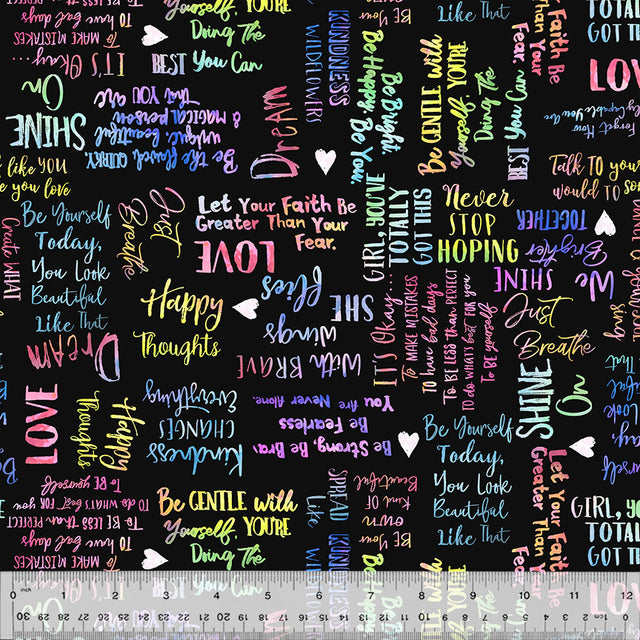 To MAKE MISTAKES
IT'S Okay...
Like That
Doing The
BEST You Can
KUNIDNESS
WILDFLOWERS
Be Bright.
Be Happy Be You.
Be GENTLE with
Yourself, YOU'RE
Doing The
BEST You Can
Faith Be
Than Your
Fear.
TOTALLY
GOT THIS
LOVE
SHINE
On
DREAM
that YOU are
& magical person
unique, beautiful
like YOU
you love
Be Yourself
Today,
You Look
Beautiful
Like That
Create WHAT
Just
Breathe
Let Your Faith Be
Greater Than Your
Fear.
LOVE
GIRL, YOU'VE
TOTALLY
GOT THIS
Never
STOP
HOPING
Talk TO
would TO
TOGETHER
Brighter
SHINE
We
Happy
Thoughts
SHE
flies
With BRAVE
Wings
IT'S Okay...
To MAKE MISTAKES
To have bad days
To BE LESS than PERFECT
TO do WHAT'S BEST FOR YOU
To BE yourself
Just
Breathe
SHINE
On
DREAM
LOVE
Happy
Thoughts
kindness
CHANGES
Everything
You Are Never Alone.
Be Fearless
Be Strong, Be
Be Yourself
Today,
You Look
Beautiful
Like That
Let Your Faith Be
Greater Than Your
Fear.
To BE yourself
TO do WHAT'S BEST FOR YOU
To BE LESS than PERFECT
To have bad days
To MAKE MISTAKES
Be GENTLE with
Yourself, YOU'RE
Doing The
BEST You Can
SPREAD
Like
KUNIDNESS
WILDFLOWERS
BE Your
own
Kind OF
Beautiful
GIRL,
TOTALLY
GOT THIS
Be Happy
Be GENTLE with
Yourself, YOU'RE
Doing The
LOVE
0 inch 1 2 3 4 5 6 7 8 9 10 11 12
30 29 28 27 26 25 24 23 22 21 20 19 18 17 16 15 14 13 12 11 10 9 8 7 6 5 4 3 2 1 0